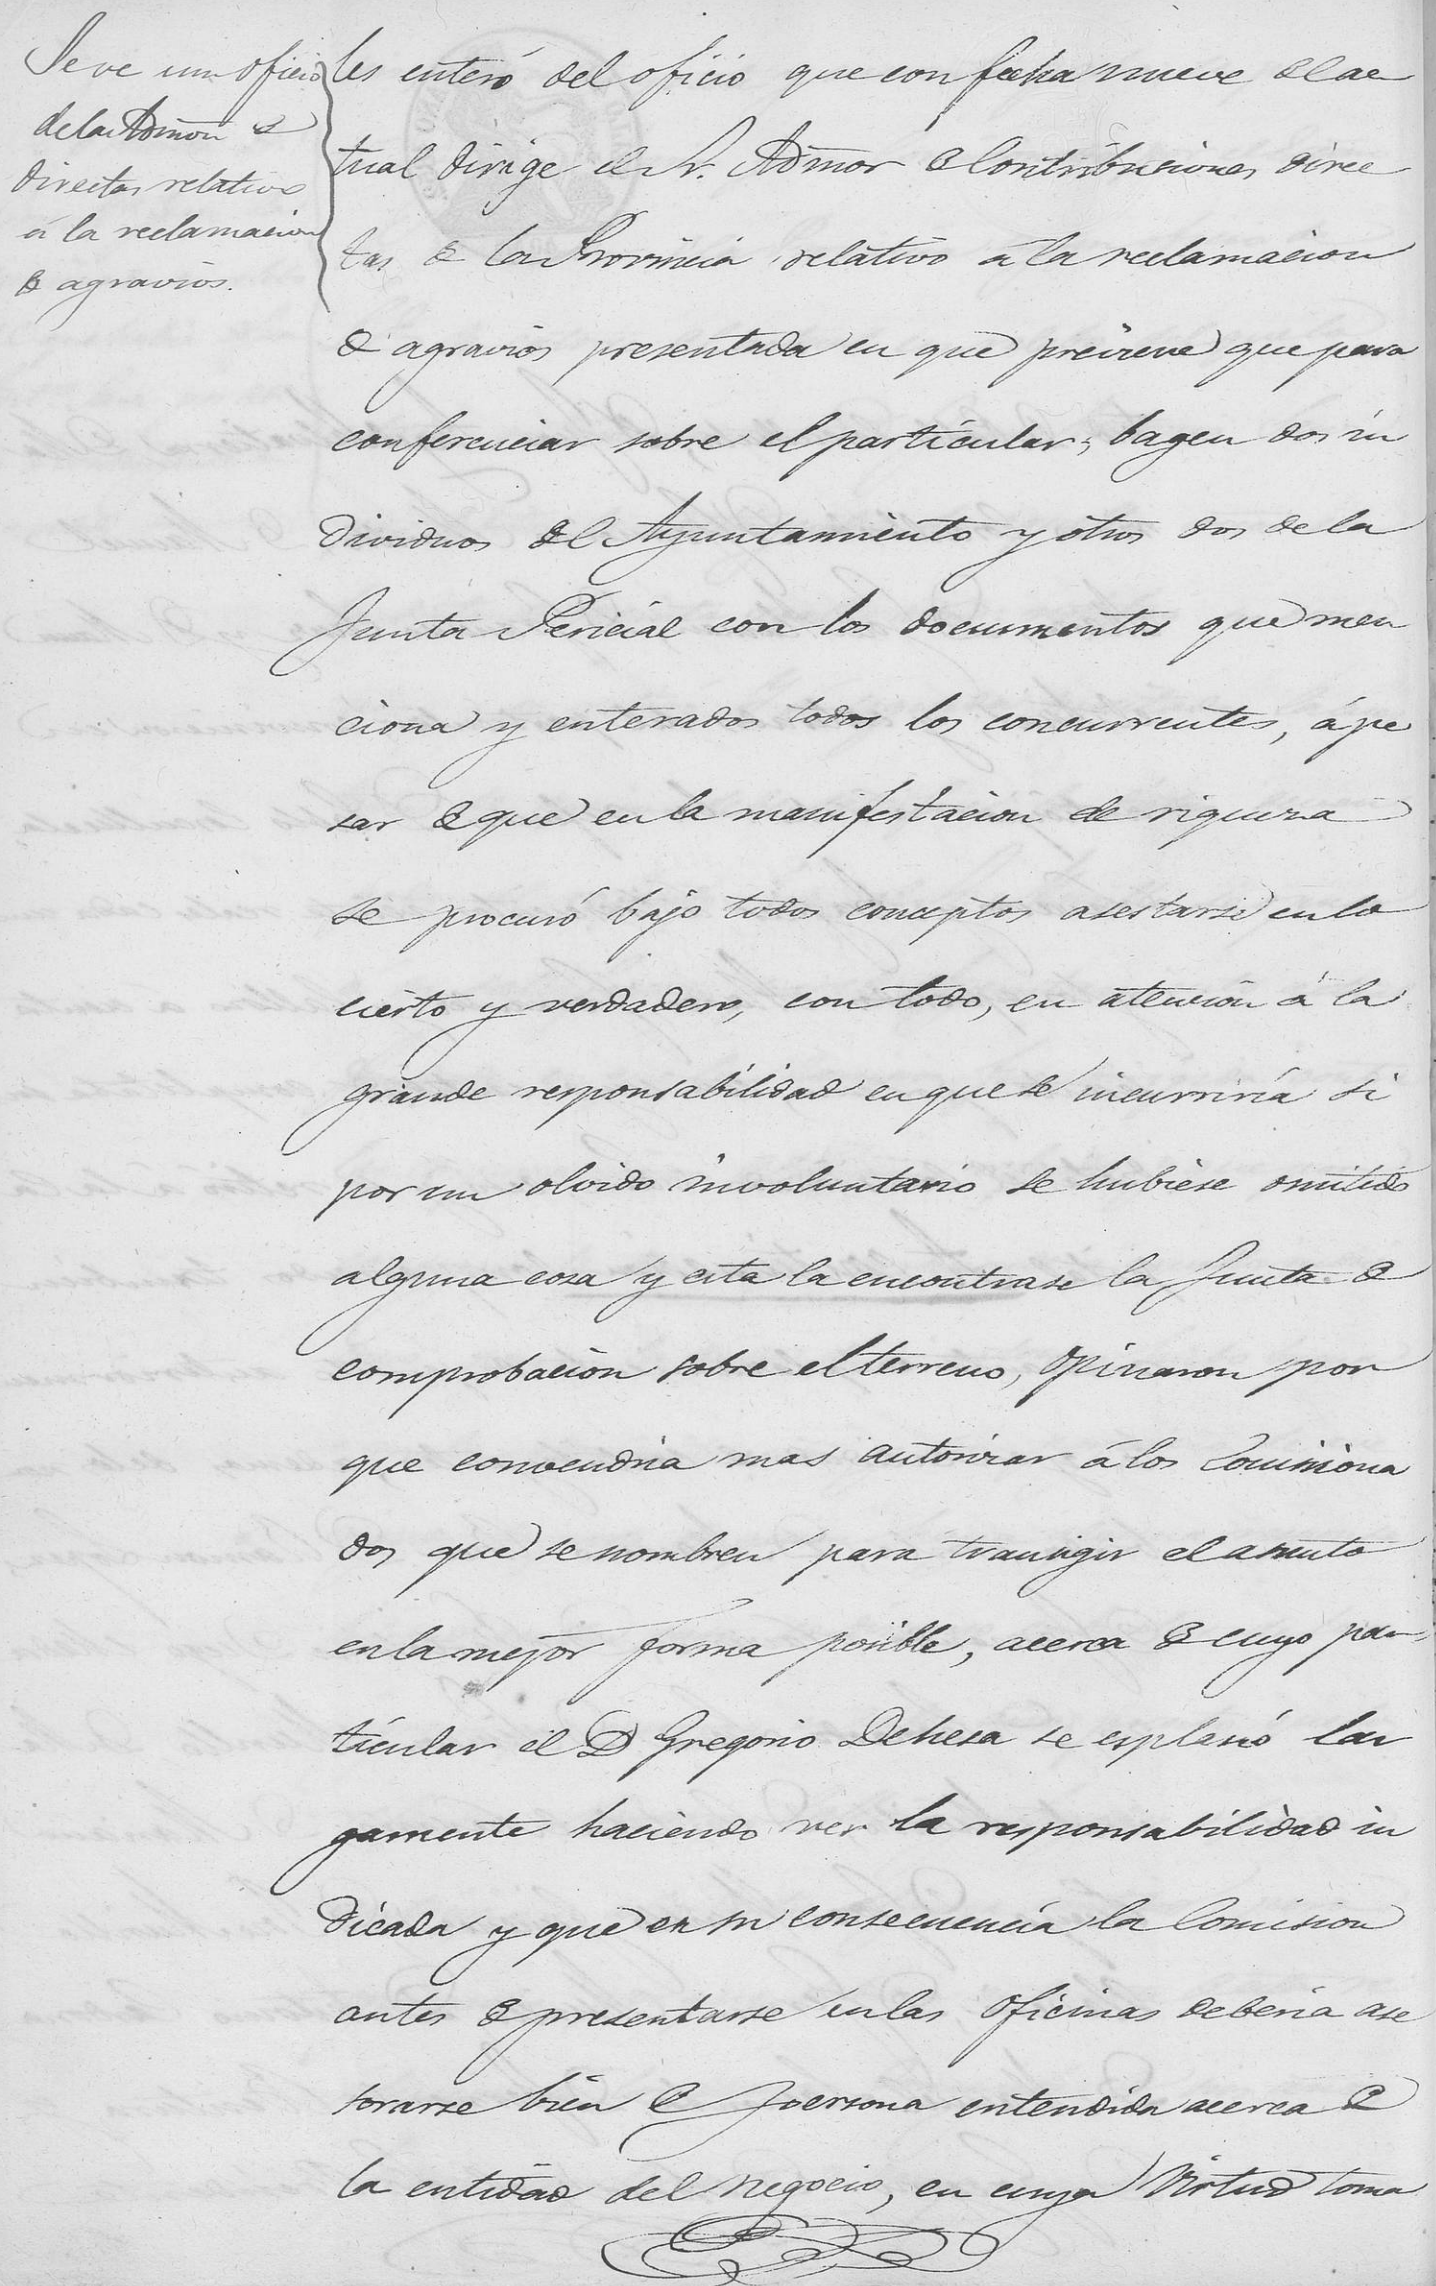 Se ve un oficio
de la Admon de
directas relativo
á la reclamacion
de agravios.
les enteró del oficio que con fecha nueve del ac
tual dirige el Sr. Admor de Contribuciones direc
tas de la Provincia relativo á la reclamacion
de agravios presentada en que previene que para
conferenciar sobre el particular, bagen dos in
dividuos del Ayuntamiento y otros dos de la
Junta Pericial con los documentos que men
ciona y enterados todos los concurrentes, á pe
sar de que en la manifestacion de riqueza
se procuró bajo todos conceptos asestarse en lo
cierto y verdadero, con todo, en atencion á la
grande responsabilidad en que se incurriría si
por un olvido involuntario se hubiese omitido
alguna cosa y esta la encontrase la Junta de
comprobacion sobre el terreno, opinaron por
que convendria mas autorizar á los Comisiona
dos que se nombren para transigir el asunto
en la mejor forma posible, acerca de cuyo par
ticular el D Gregorio Dehesa se esplanó lar
gamente haciendo ver la responsabilidad in
dicada y que en su consecuencia la Comision
antes de presentarse en las oficinas deberia ase
sorarse bien de persona entendida acerca de
la entidad del negocio, en cuya virtud toma